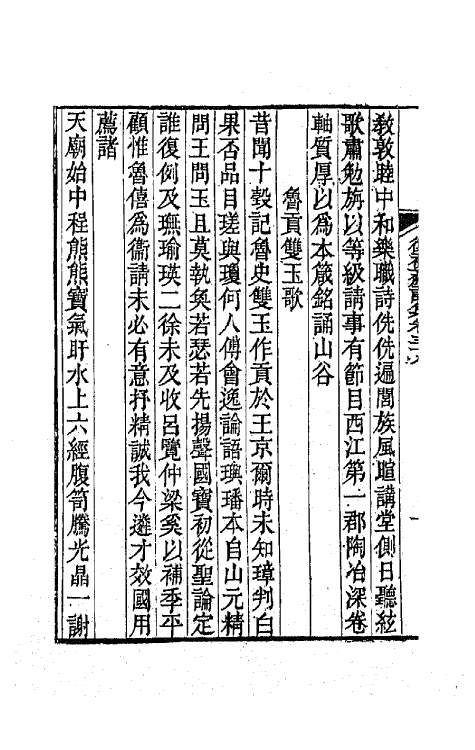 敎敦睦中和樂職詩侁侁遍閭族風暄講堂側日聽絃
歌肅勉旃以等級請事有節目西江第一郡陶冶深卷
軸質厚以爲本箴銘誦山谷
魯貢雙玉歌
昔聞十㲄記魯史雙玉作貢於王京爾時未知璋判白
果否品目瑳與瓊何人傅會逸論語璵璠本自山元精
問王問玉且莫執奐若瑟若先揚聲國寶初從聖論定
誰復例及璑瑜瑛二徐未及收呂覽仲梁奚以補季平
顧惟魯僖爲衞請未必有意抒精誠我今遴才效國用
薦諸
天廟始中程熊熊寶氣盱水上六經腹笥騰光晶一謝